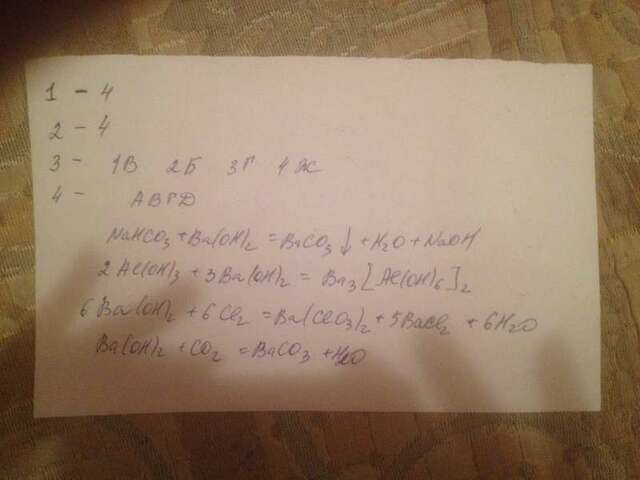 1 - 4
2 - 4
3 - 1В 2Б 3Г 4Ж
4 - АВГД
NaHCO₃ + Ba(OH)₂ = BaCO₃↓ + H₂O + NaOH
2Al(OH)₃ + 3Ba(OH)₂ = Ba₃[Al(OH)₆]₂
6Ba(OH)₂ + 6Cl₂ = Ba(ClO₃)₂ + 5BaCl₂ + 6H₂O
Ba(OH)₂ + CO₂ = BaCO₃ + H₂O